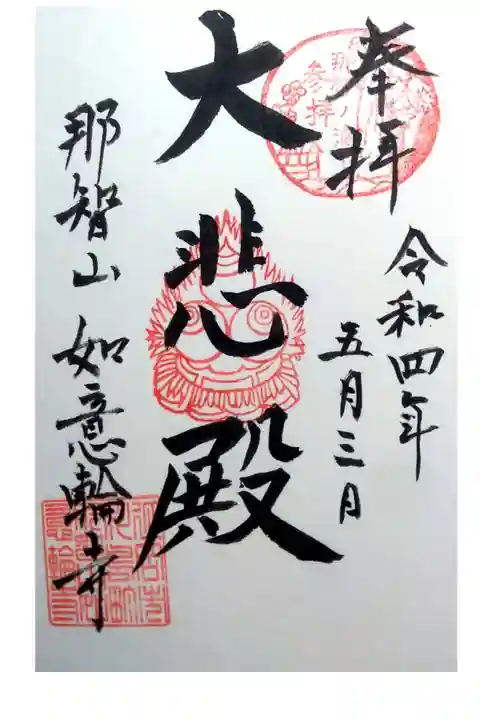 奉拝
令和四年
五月三日
大悲殿
那智山 如意輪寺
参拝